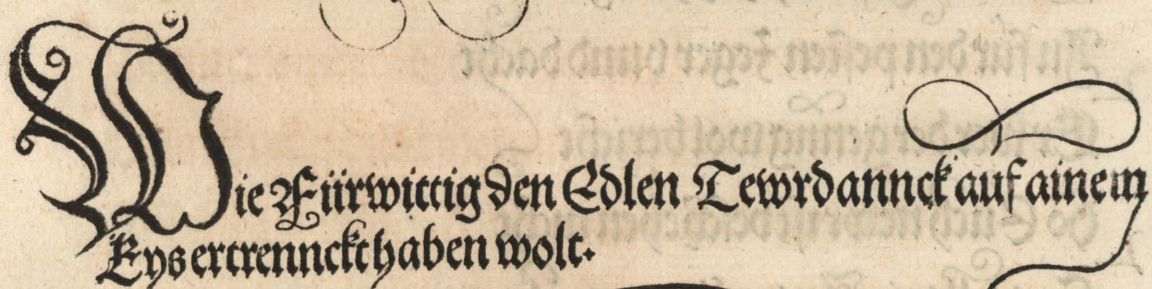 Wie Fürwittig den Edlen Tewrdannck auf ainem
Eys ertrennckt haben wolt.